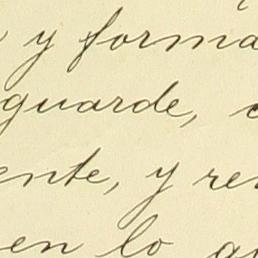 y forma
guarde,
ente, y re
en lo